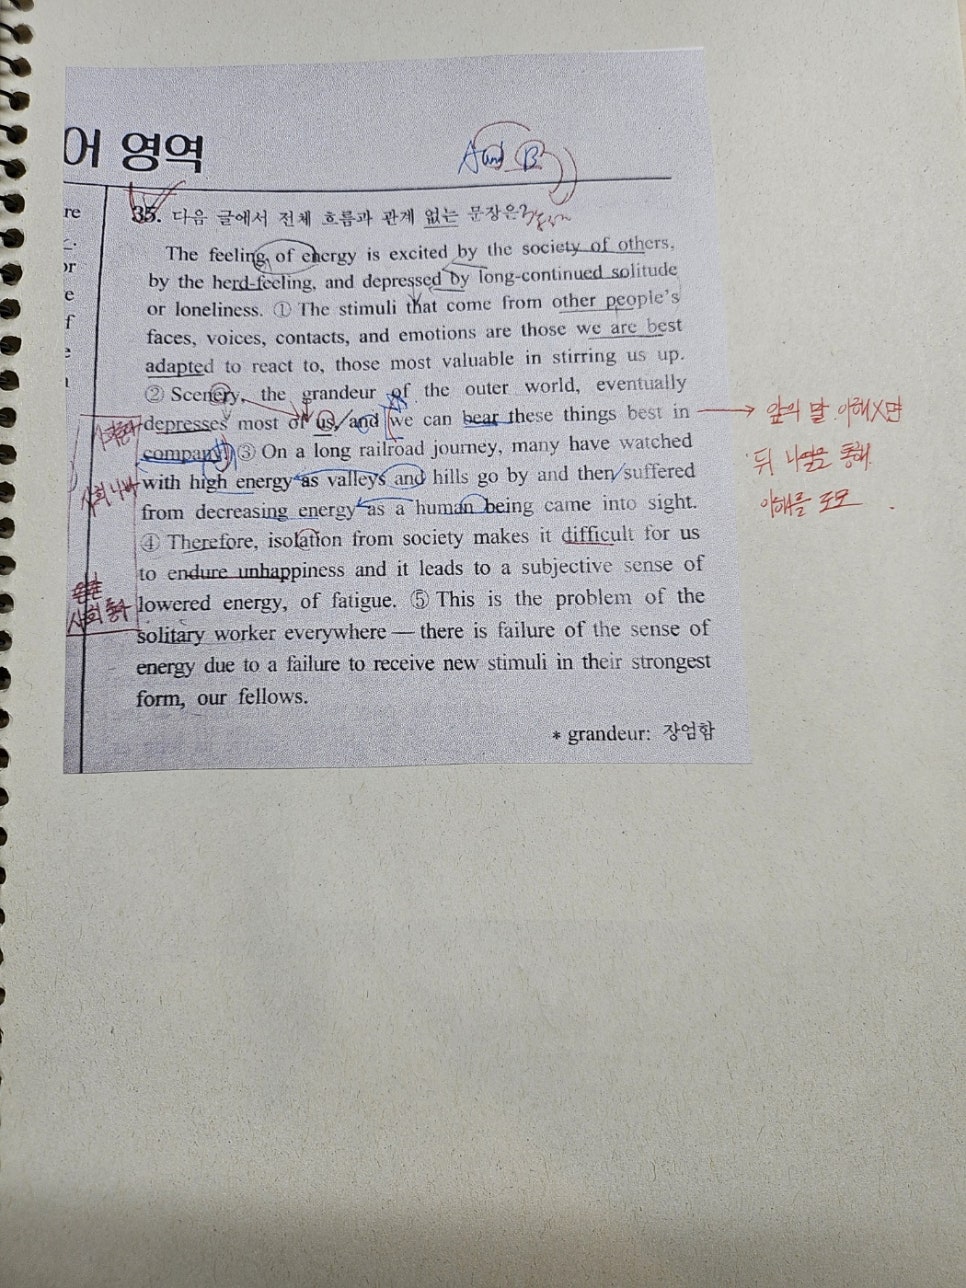 어 영역
A and B
re
35. 다음 글에서 전체 흐름과 관계 없는 문장은?
The feeling of energy is excited by the society of others,
or
by the herd-feeling, and depressed by long-continued solitude
e
or loneliness. ① The stimuli that come from other people's
f
faces, voices, contacts, and emotions are those we are best
adapted to react to, those most valuable in stirring us up.
② Scenery, the grandeur of the outer world, eventually
depresses most of us, and we can bear these things best in
앞의 말 이해X면
company. ③ On a long railroad journey, many have watched
뒤 나열을 통해
with high energy as valleys and hills go by and then suffered
from decreasing energy as a human being came into sight.
이해를 도모.
④ Therefore, isolation from society makes it difficult for us
to endure unhappiness and it leads to a subjective sense of
lowered energy, of fatigue. ⑤ This is the problem of the
solitary worker everywhere — there is failure of the sense of
energy due to a failure to receive new stimuli in their strongest
form, our fellows.
* grandeur: 장엄함